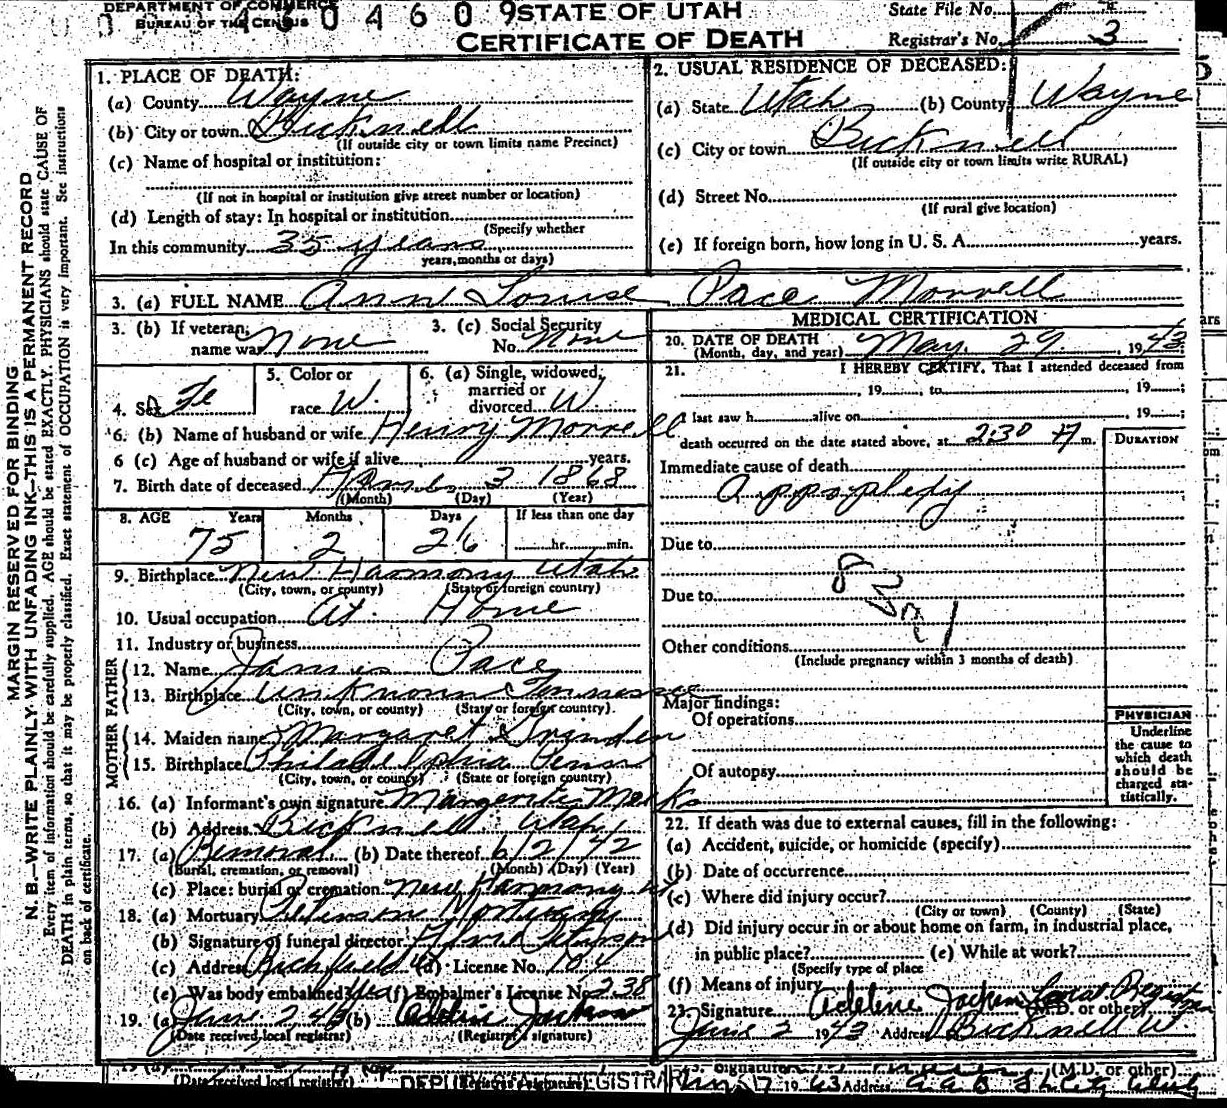 DEPARTMENT OF COMMERCE
BUREAU OF THE CENSUS
STATE OF UTAH
CERTIFICATE OF DEATH
State File No.
Registrar's No. 3
MARGIN RESERVED FOR BINDING
N. B.—WRITE PLAINLY WITH UNFADING INK—THIS IS A PERMANENT RECORD
Every item of information should be carefully supplied. AGE should be stated EXACTLY. PHYSICIANS should state CAUSE OF
DEATH in plain terms, so that it may be properly classified. Exact statement of OCCUPATION is very important. See instructions
on back of certificate.
1. PLACE OF DEATH:
(a) County Wayne
(b) City or town Bicknell
(If outside city or town limits name Precinct)
(c) Name of hospital or institution:
(If not in hospital or institution give street number or location)
(d) Length of stay: In hospital or institution
(Specify whether
In this community 35 years
years, months or days)
2. USUAL RESIDENCE OF DECEASED:
(a) State Utah (b) County Wayne
(c) City or town Bicknell
(If outside city or town limits write RURAL)
(d) Street No.
(If rural give location)
(e) If foreign born, how long in U. S. A. years.
3. (a) FULL NAME Ann Louise Pace Morrell
3. (b) If veteran, name war None
3. (c) Social Security No. None
4. Sex Fe
5. Color or race W.
6. (a) Single, widowed, married or divorced W
6. (b) Name of husband or wife Henry Morrell
6 (c) Age of husband or wife if alive years.
7. Birth date of deceased 3 1868
(Month) (Day) (Year)
8. AGE Years Months Days If less than one day
75 2 26 hr. min.
9. Birthplace New Harmony Utah
(City, town, or county) (State or foreign country)
10. Usual occupation At Home
11. Industry or business
FATHER
12. Name James Pace
13. Birthplace Unknown Tennessee
(City, town, or county) (State or foreign country)
MOTHER
14. Maiden name Margaret
15. Birthplace Philadelphia Penn
(City, town, or county) (State or foreign country)
16. (a) Informant's own signature Margerite Meeks
(b) Address Bicknell Utah
17. (a) Removal (b) Date thereof 6/2/42
(Burial, cremation, or removal) (Month) (Day) (Year)
(c) Place: burial or cremation New Harmony Ut
18. (a) Mortuary Mortuary
(b) Signature of funeral director
(c) Address Richfield (d) License No. 104
(e) Was body embalmed? yes (f) Embalmer's License No. 238
19. (a) June 2 43 (b) Adeline Jackson
(Date received local registrar) (Registrar's signature)
MEDICAL CERTIFICATION
20. DATE OF DEATH
(Month, day, and year) May. 29, 1943
21. I HEREBY CERTIFY, That I attended deceased from
, 19 , to , 19 ;
last saw h alive on , 19 ;
death occurred on the date stated above, at 2:30 A m.
DURATION
Immediate cause of death
Appopledy
Due to
Due to
Other conditions
(Include pregnancy within 3 months of death)
Major findings:
Of operations
Of autopsy
PHYSICIAN
Underline
the cause to
which death
should be
charged sta-
tistically.
22. If death was due to external causes, fill in the following:
(a) Accident, suicide, or homicide (specify)
(b) Date of occurrence
(c) Where did injury occur?
(City or town) (County) (State)
(d) Did injury occur in or about home on farm, in industrial place,
in public place? (e) While at work?
(Specify type of place
(f) Means of injury
23. Signature Adeline Jackson Local Registrar
(M.D. or other)
June 2 1943 Address Bicknell U
(Date received local registrar) DEPUTY STATE REGISTRAR
Signature (M.D. or other)